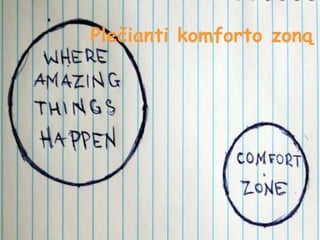 Plečianti komforto zoną
WHERE
AMAZING
THINGS
HAPPEN
COMFORT
ZONE